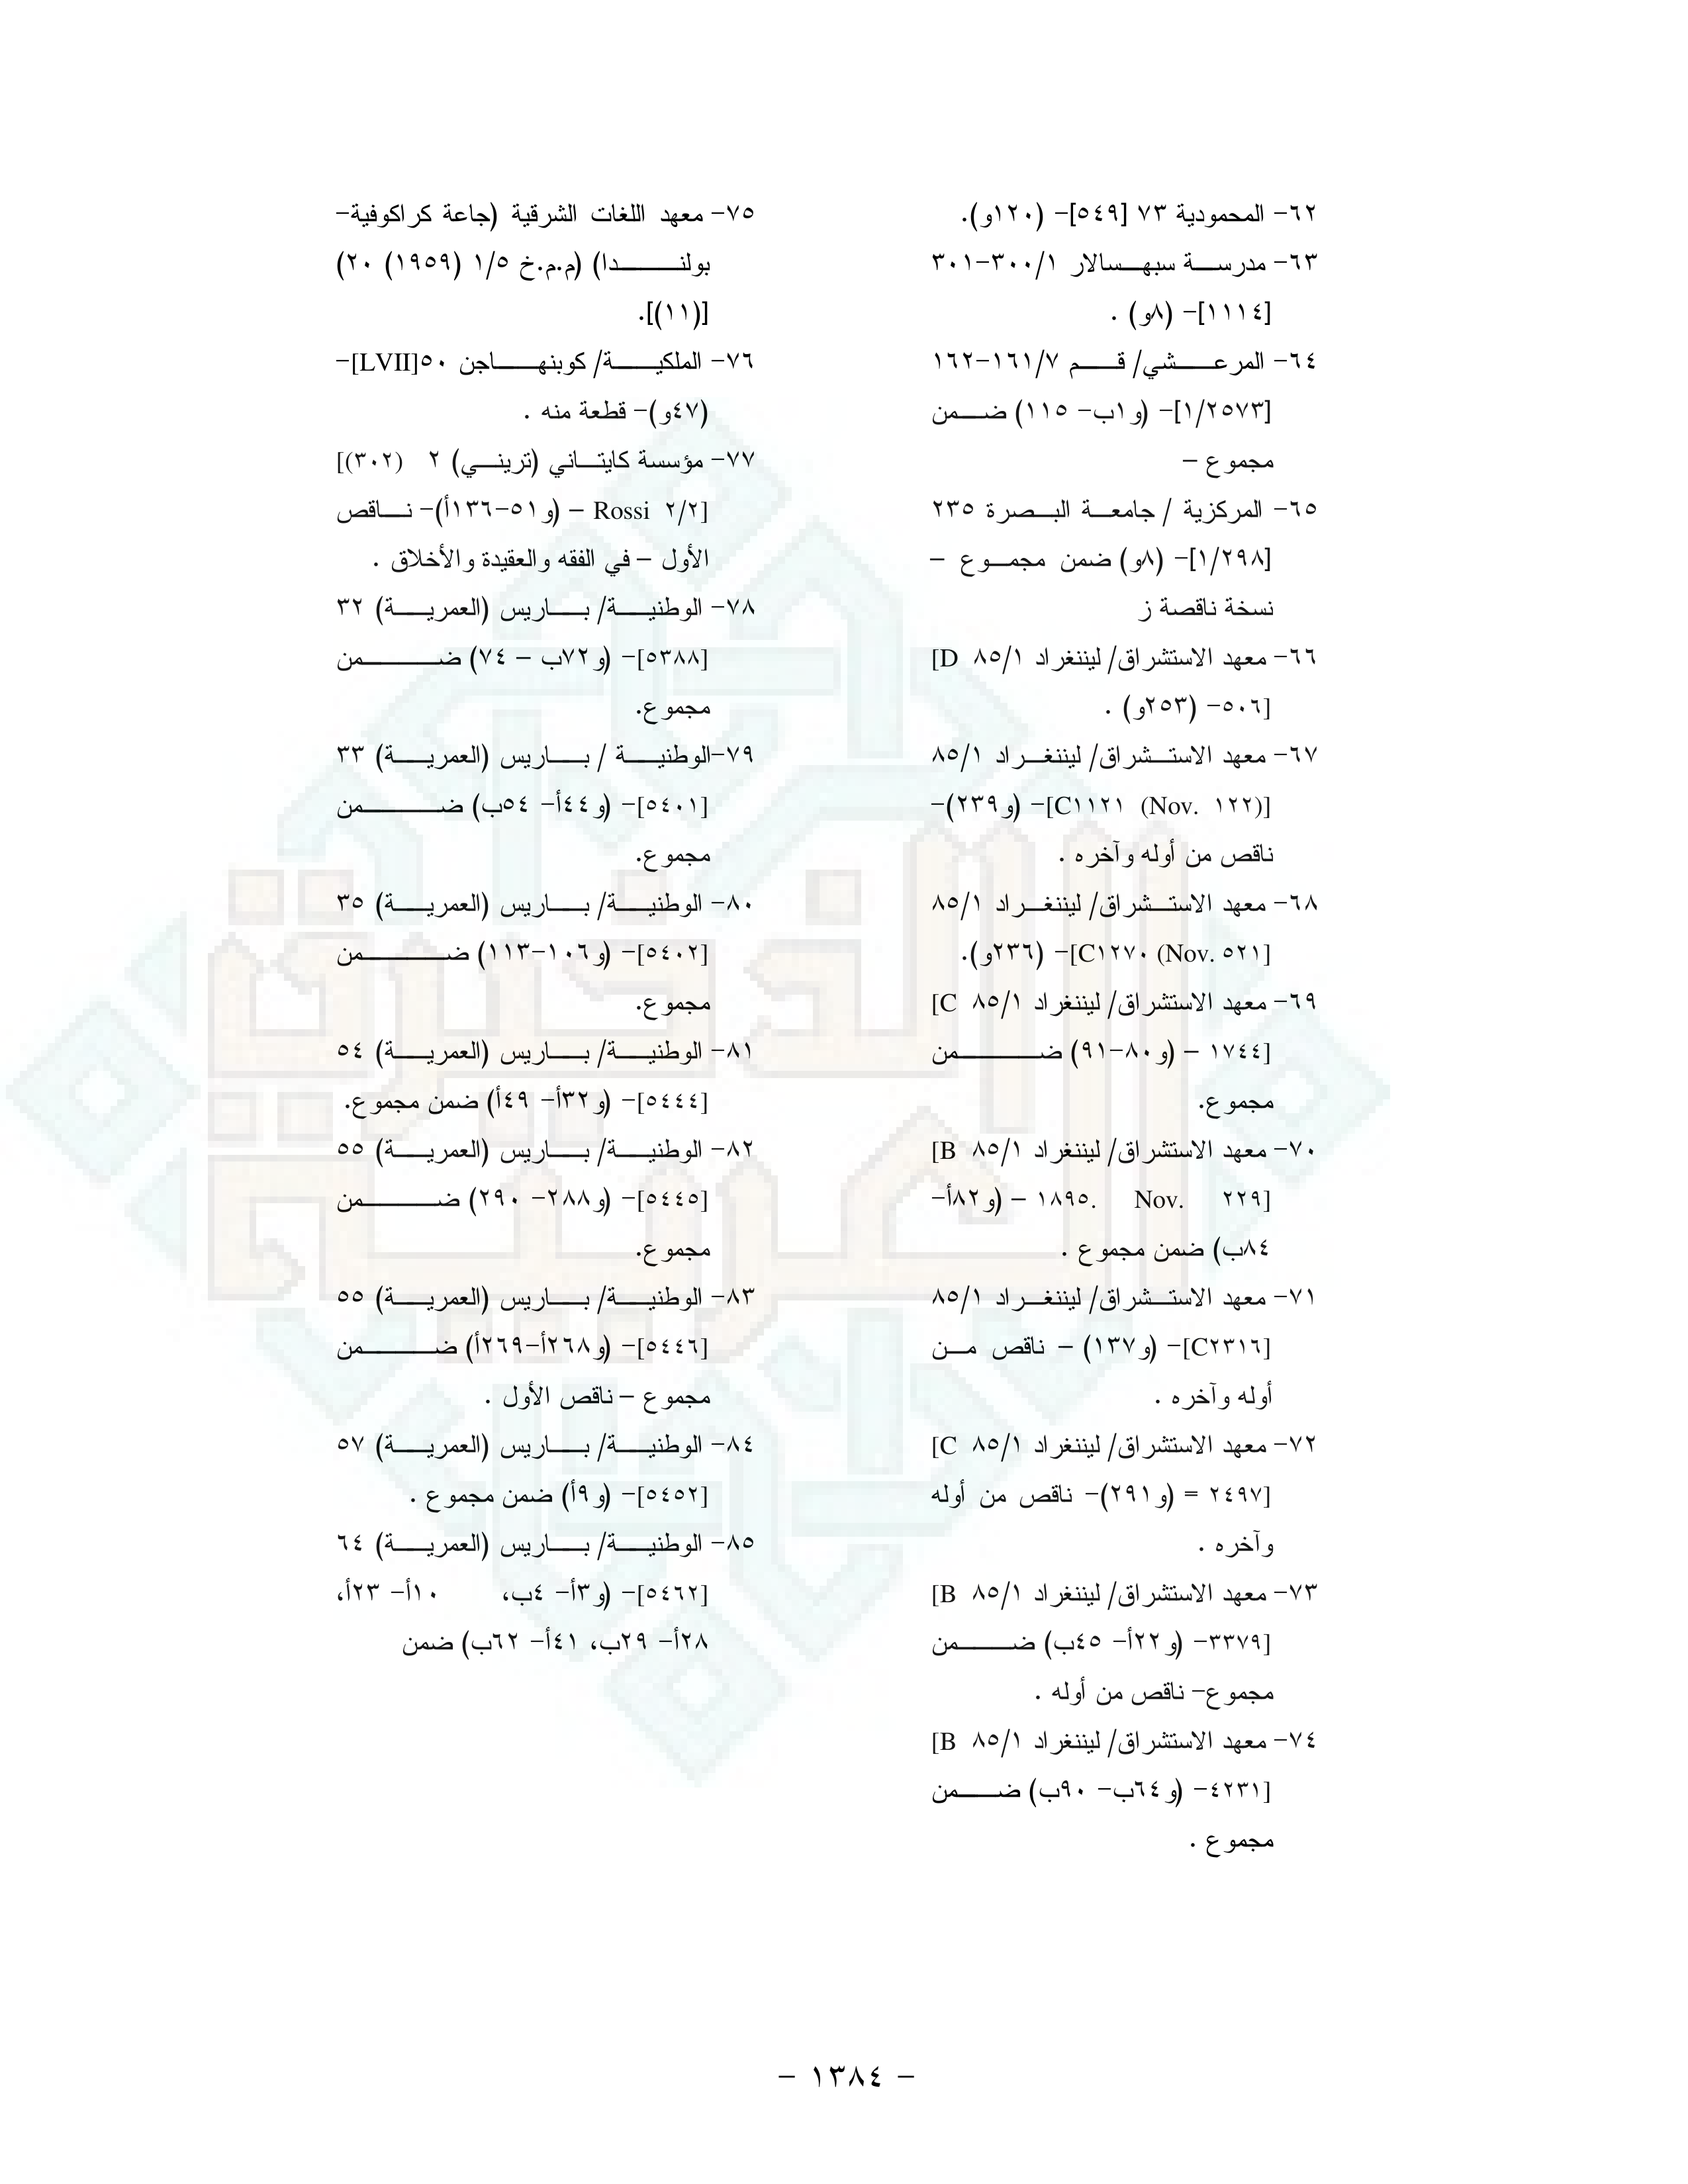 ٦٢- المحمودية ٧٣ [٥٤٩]- (١٢٠و).
٦٣- مدرسة سبهسالار ٣٠٠/١-٣٠١
[١١١٤]- (٨و) .
٦٤- المرعشي/ قم ١٦١/٧-١٦٢
[١/٢٥٧٣]- (و١ب- ١١٥) ضمن
مجموع –
٦٥- المركزية / جامعة البصرة ٢٣٥
[١/٢٩٨]- (٨و) ضمن مجموع –
نسخة ناقصة ز
٦٦- معهد الاستشراق/ ليننغراد ٨٥/١ [D
٥٠٦]- (٢٥٣و) .
٦٧- معهد الاستشراق/ ليننغراد ٨٥/١
[C١١٢١ (Nov. ١٢٢)]- (و٢٣٩)-
ناقص من أوله وآخره .
٦٨- معهد الاستشراق/ ليننغراد ٨٥/١
[C١٢٧٠ (Nov. ٥٢١]- (٢٣٦و).
٦٩- معهد الاستشراق/ ليننغراد ٨٥/١ [C
١٧٤٤] – (و٨٠-٩١) ضمن
مجموع.
٧٠- معهد الاستشراق/ ليننغراد ٨٥/١ [B
٢٢٩] Nov. ١٨٩٥. – (و٨٢أ-
٨٤ب) ضمن مجموع .
٧١- معهد الاستشراق/ ليننغراد ٨٥/١
[C٢٣١٦]- (و١٣٧) – ناقص من
أوله وآخره .
٧٢- معهد الاستشراق/ ليننغراد ٨٥/١ [C
٢٤٩٧] = (و٢٩١)- ناقص من أوله
وآخره .
٧٣- معهد الاستشراق/ ليننغراد ٨٥/١ [B
٣٣٧٩]- (و٢٢أ- ٤٥ب) ضمن
مجموع- ناقص من أوله .
٧٤- معهد الاستشراق/ ليننغراد ٨٥/١ [B
٤٢٣١]- (و٦٤ب- ٩٠ب) ضمن
مجموع .
٧٥- معهد اللغات الشرقية (جاعة كراكوفية-
بولندا) (م.م.خ ١/٥ (١٩٥٩) ٢٠)
[(١١)].
٧٦- الملكية/ كوبنهاجن ٥٠[LVII]-
(٤٧و)- قطعة منه .
٧٧- مؤسسة كايتاني (تريني) ٢ (٣٠٢)]
[Rossi ٢/٢ – (و٥١-١٣٦أ)- ناقص
الأول – في الفقه والعقيدة والأخلاق .
٧٨- الوطنية/ باريس (العمرية) ٣٢
[٥٣٨٨]- (و٧٢ب – ٧٤) ضمن
مجموع.
٧٩-الوطنية / باريس (العمرية) ٣٣
[٥٤٠١]- (و٤٤أ- ٥٤ب) ضمن
مجموع.
٨٠- الوطنية/ باريس (العمرية) ٣٥
[٥٤٠٢]- (و١٠٦-١١٣) ضمن
مجموع.
٨١- الوطنية/ باريس (العمرية) ٥٤
[٥٤٤٤]- (و٣٢أ- ٤٩أ) ضمن مجموع.
٨٢- الوطنية/ باريس (العمرية) ٥٥
[٥٤٤٥]- (و٢٨٨- ٢٩٠) ضمن
مجموع.
٨٣- الوطنية/ باريس (العمرية) ٥٥
[٥٤٤٦]- (و٢٦٨أ-٢٦٩أ) ضمن
مجموع – ناقص الأول .
٨٤- الوطنية/ باريس (العمرية) ٥٧
[٥٤٥٢]- (و٩أ) ضمن مجموع .
٨٥- الوطنية/ باريس (العمرية) ٦٤
[٥٤٦٢]- (و٣أ- ٤ب، ١٠أ- ٢٣أ،
٢٨أ- ٢٩ب، ٤١أ- ٦٢ب) ضمن
الذخيرة
العربية
- ١٣٨٤ -